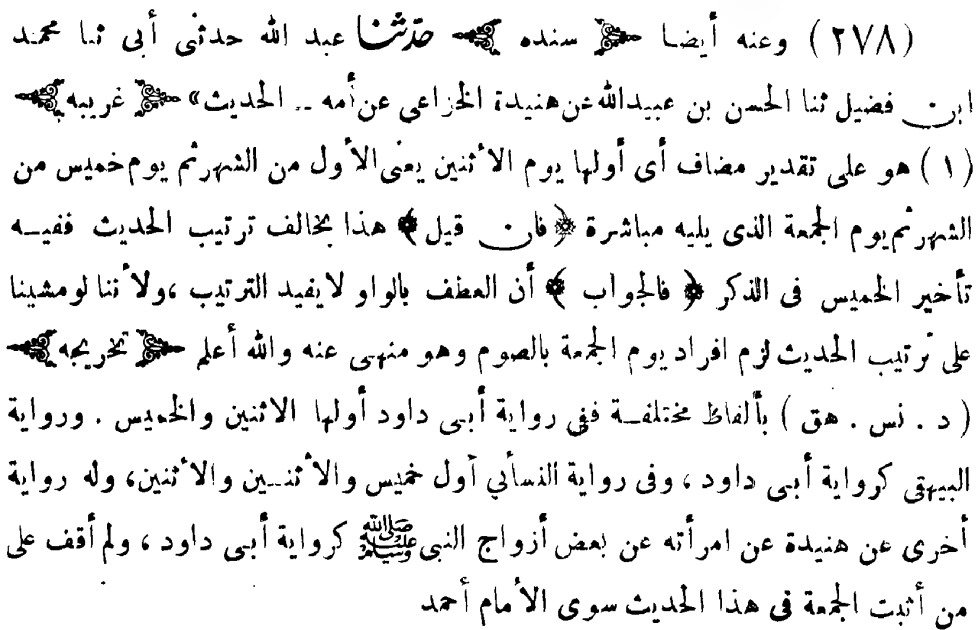 (٢٧٨) وعنه أيضا ﴿ سنده ﴾ حدثنا عبد الله حدثنى أبى ثنا محمد
ابن فضيل ثنا الحسن بن عبيد الله عن هنيدة الخزاعى عن أمه .. الحديث» ﴿ غريبه ﴾
(١) هو على تقدير مضاف أى أولها يوم الأثنين يعنى الأول من الشهر ثم يوم خميس من
الشهر ثم يوم الجمعة الذى يليه مباشرة ﴿ فان قيل ﴾ هذا يخالف ترتيب الحديث ففيه
تأخير الخميس فى الذكر ﴿ فالجواب ﴾ أن العطف بالواو لا يفيد الترتيب ، ولأننا لو مشينا
على ترتيب الحديث لزم افراد يوم الجمعة بالصوم وهو منهى عنه والله أعلم ﴿ تخريجه ﴾
(د . نس . هق) بألفاظ مختلفة ففى رواية أبى داود أولها الاثنين والخميس . ورواية
البيهقى كرواية أبى داود ، وفى رواية النسأبي أول خميس والأثنين والأثنين، وله رواية
أخرى عن هنيدة عن امرأته عن بعض أزواج النبى ﷺ كرواية أبى داود ، ولم أقف على
من أثبت الجمعة فى هذا الحديث سوى الأمام أحمد